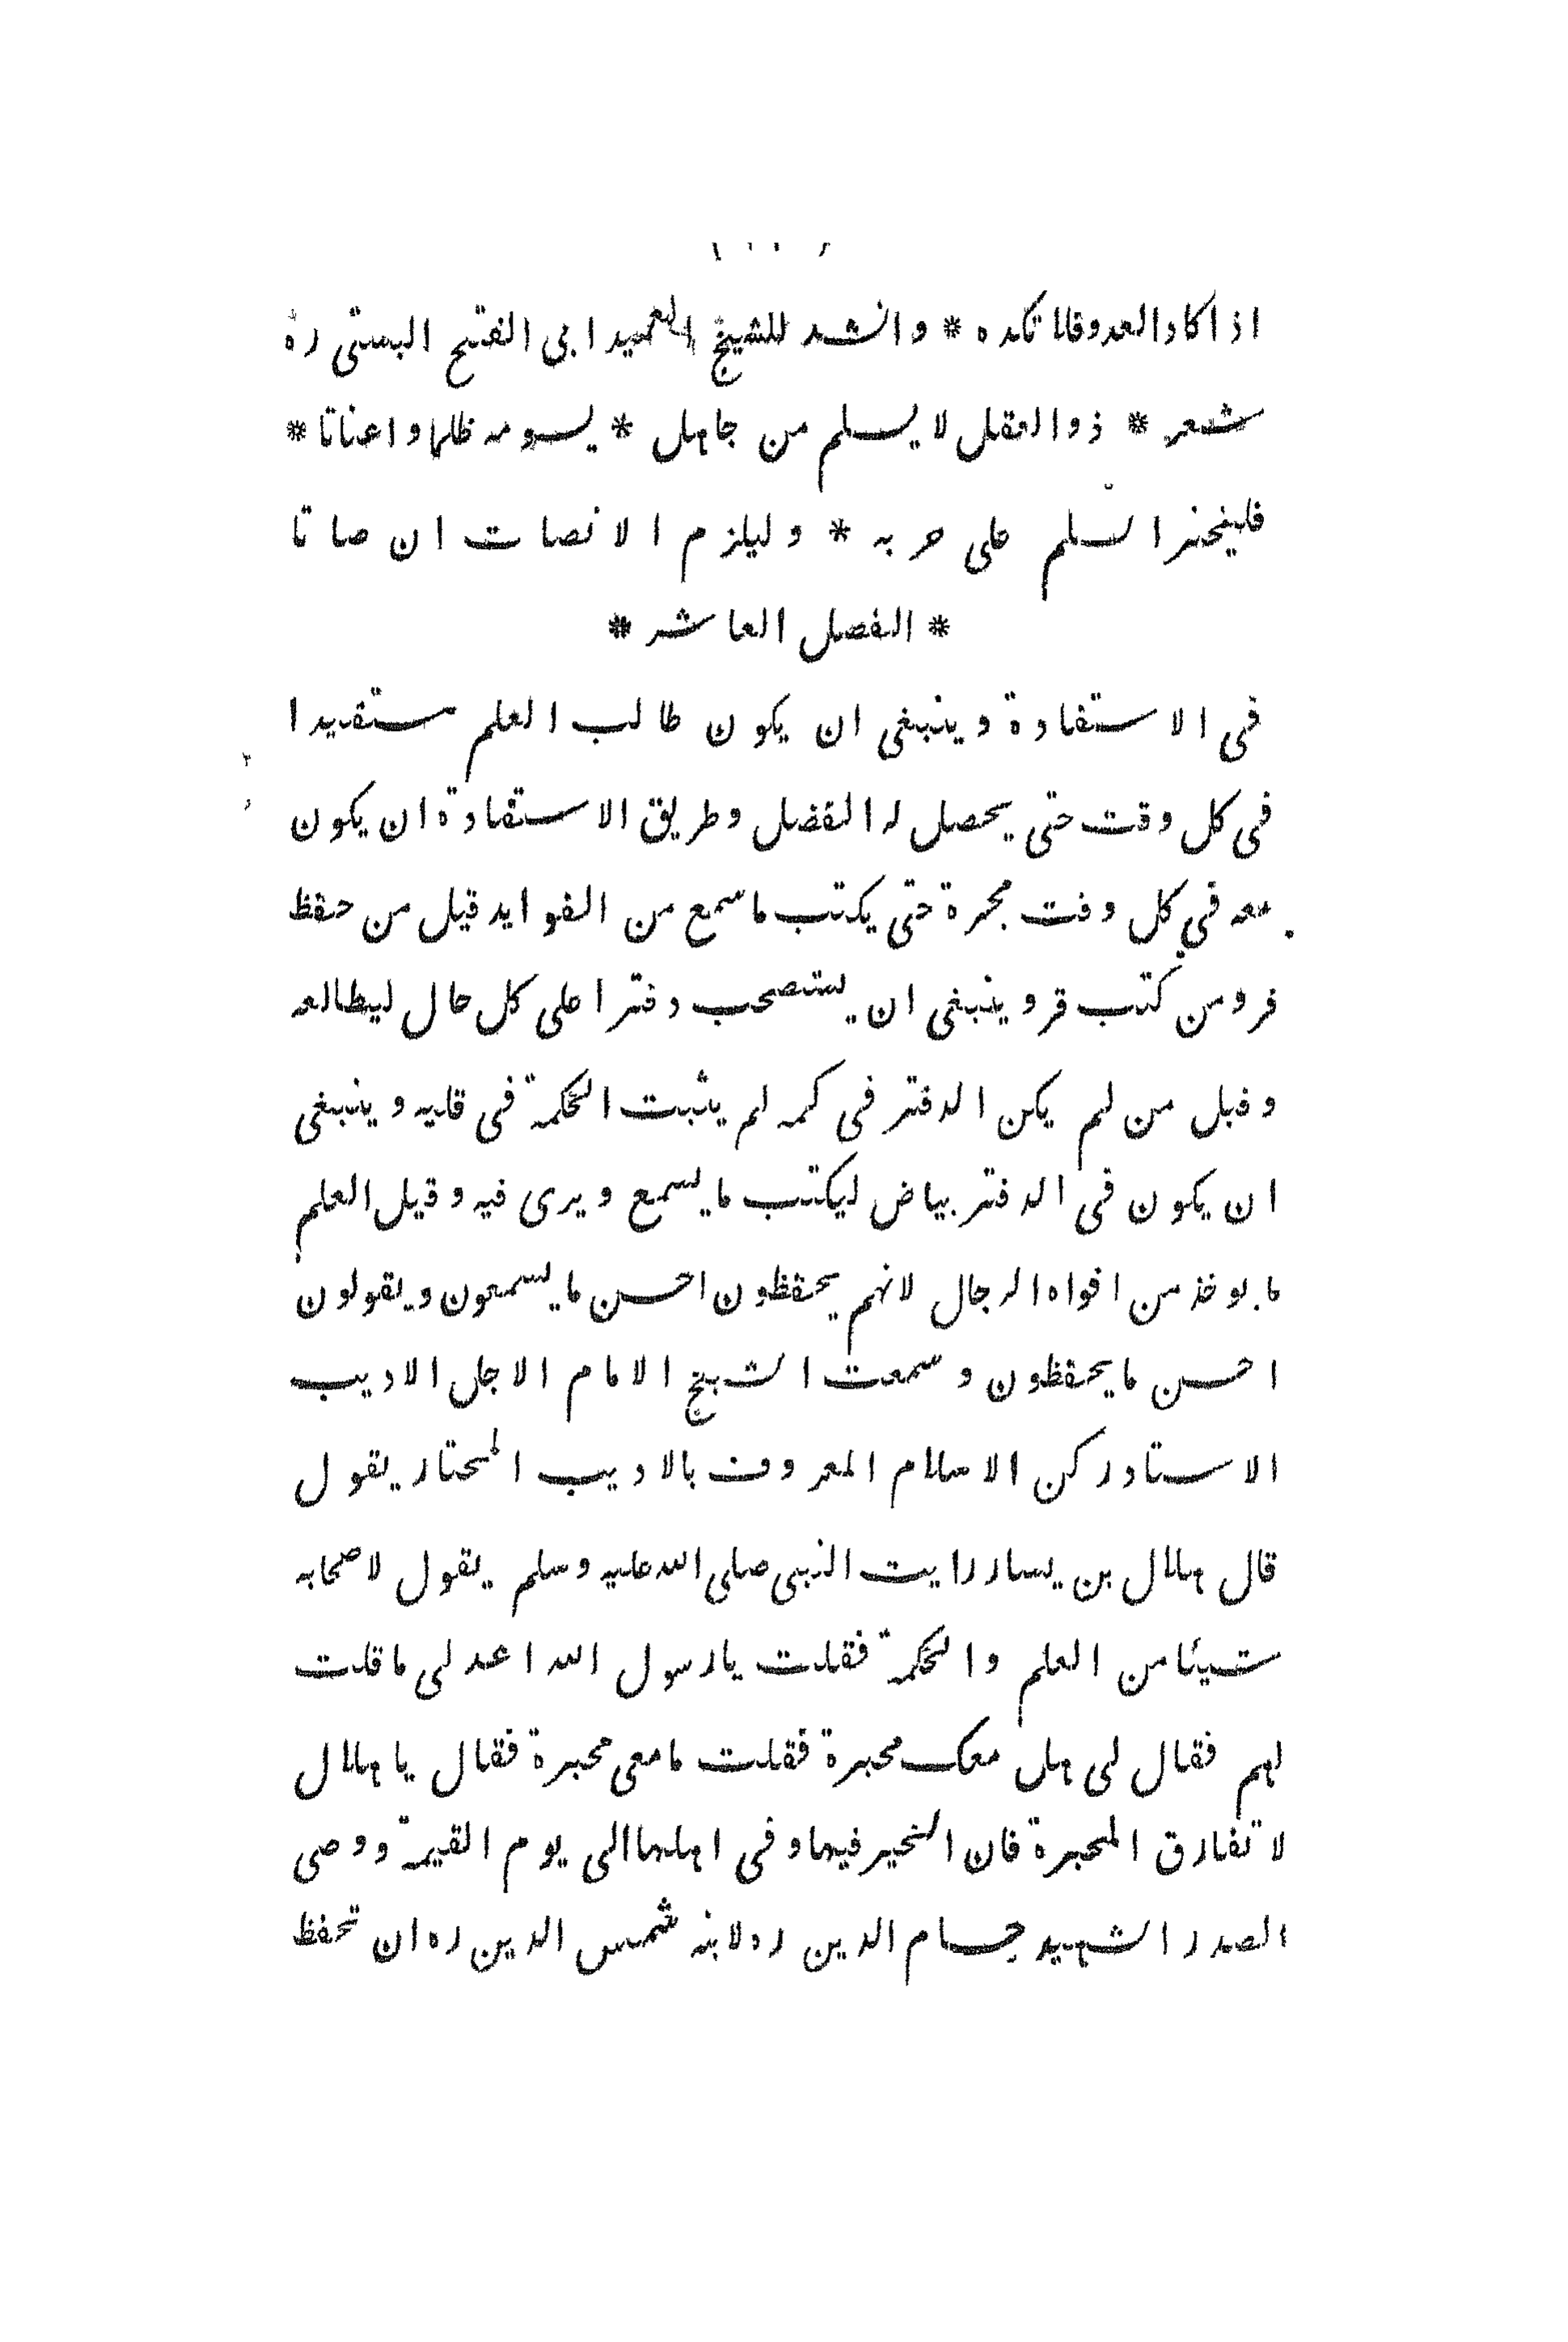 اذا كاد العدو فلا تكده * وانشد للشيخ العميد ابى الفتح البستى ره
شعر * ذو العقل لا يسلم من جاهل * يسومه ظلما واعناتا *
فليختر السلم على حربه * وليلزم الانصات ان صاتا
* الفصل العاشر *
فى الاستفادة وينبغى ان يكون طالب العلم ستفيدا
فى كل وقت حتى يحصل له الفضل وطريق الاستفادة ان يكون
معه فى كل وقت محبرة حتى يكتب ما سمع من الفوايد قيل من حفظ
فر ومن كتب قر وينبغى ان يستصحب دفترا على كل حال ليطالعه
وقيل من لم يكن الدفتر فى كمه لم يثبت الحكمة فى قلبه وينبغى
ان يكون فى الدفتر بياض ليكتب ما يسمع ويرى فيه وقيل العلم
ما يوخذ من افواه الرجال لانهم يحفظون احسن ما يسمعون ويقولون
احسن ما يحفظون وسمعت الشيخ الامام الاجل الاديب
الاستاد ركن الاسلام المعروف بالاديب المختار يقول
قال هلال بن يسار رايت النبى صلى الله عليه وسلم يقول لاصحابه
شيئا من العلم والحكمة فقلت يا رسول الله اعد لى ما قلت
لهم فقال لى هل معك محبرة فقلت ما معى محبرة فقال يا هلال
لا تفارق المحبرة فان الخير فيها وفى اهلها الى يوم القيمة ووصى
الصدر الشهيد حسام الدين ره لابنه شمس الدين ره ان تحفظ